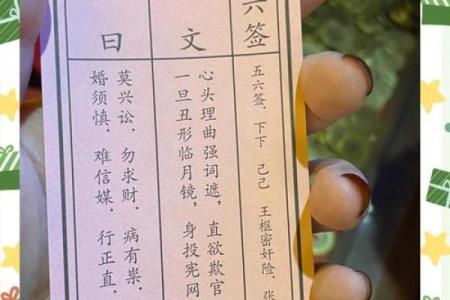 六签
五六签．下下 己己 王枢密奸险．张
文
心头理曲强词遮，直欲欺官
一旦丑形临月镜，身投宪网
曰
莫兴讼．勿求财．病有祟．
婚须慎．难信媒．行正直．